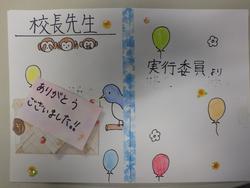 校長先生
ありがとう
ございました!!
実行委員より